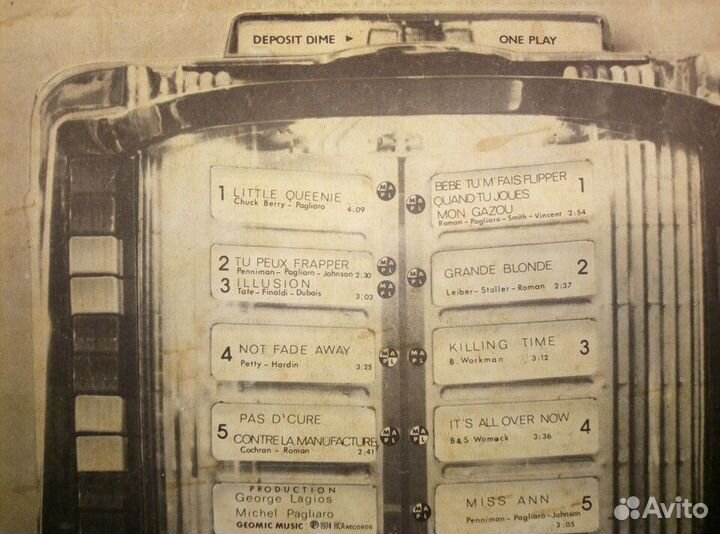 DEPOSIT DIME ► ONE PLAY
1 LITTLE QUEENIE
Chuck Berry - Pagliaro 4:09
MAPL
2 TU PEUX FRAPPER
Penniman - Pagliaro - Johnson 2:30
3 ILLUSION
Tate - Finaldi - Dubois 3:03
MAPL
MAPL
4 NOT FADE AWAY
Petty - Hardin 3:25
MAPL
PAS D'CURE
5 CONTRE LA MANUFACTURE
Cochran - Roman 2:41
MAPL
PRODUCTION
George Lagios
Michel Pagliaro
GEOMIC MUSIC ℗ 1974 RCA RECORDS
MAPL
BEBE TU M'FAIS FLIPPER 1
QUAND TU JOUES
MON GAZOU
Roman - Pagliaro - Smith - Vincent 2:54
MAPL
GRANDE BLONDE 2
Leiber - Stoller - Roman 2:37
MAPL
KILLING TIME 3
B. Workman 3:12
MAPL
IT'S ALL OVER NOW 4
B&S Womack 3:36
MAPL
MISS ANN 5
Penniman - Pagliaro - Johnson
3:05
Avito